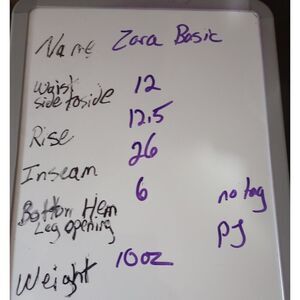 Name Zara Basic
Waist 12
side to side
12.5
Rise
26
Inseam
6
Bottom Hem no tag
Leg opening PJ
Weight 10oz